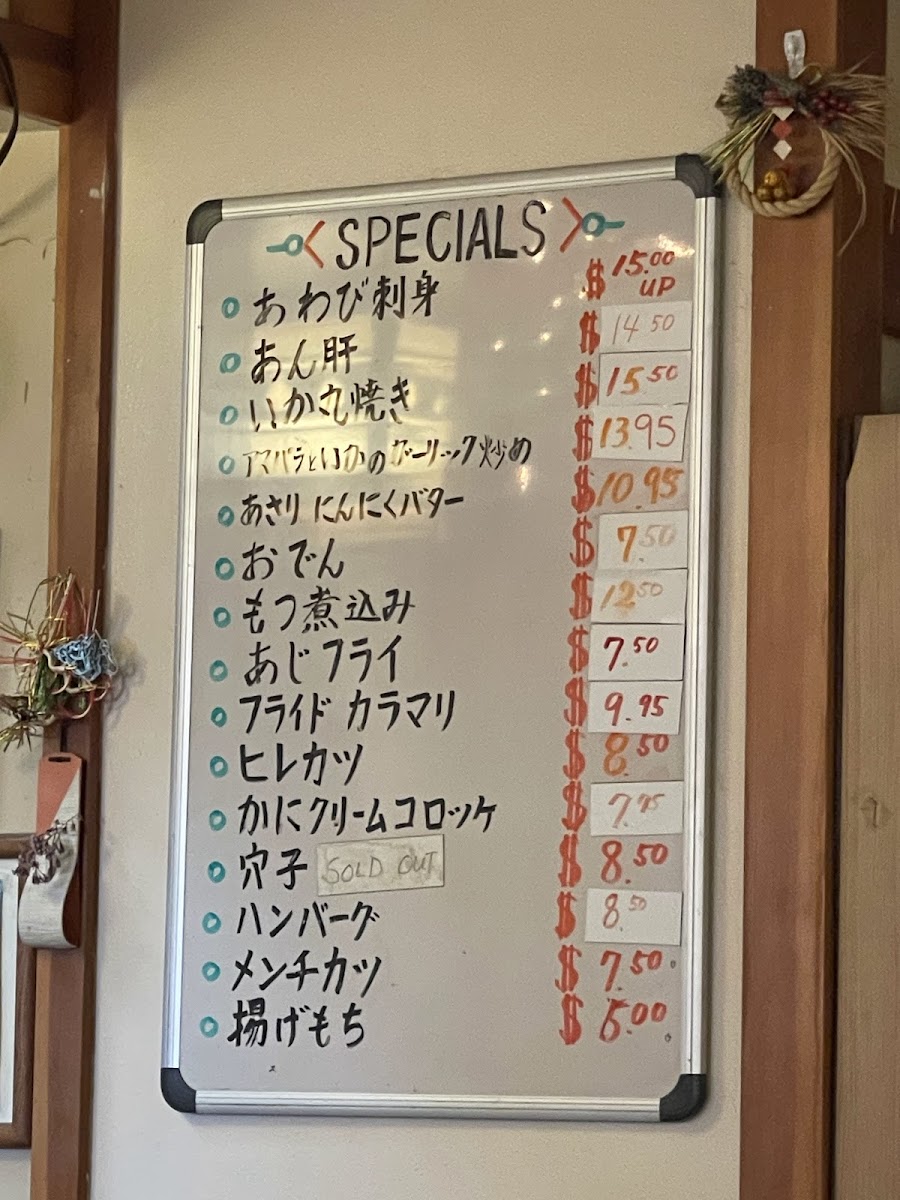 <SPECIALS>
あわび刺身 $15.00 UP
あん肝 $14.50
いか丸焼き $15.50
アスパラといかのガーリック炒め $13.95
あさりにんにくバター $10.95
おでん $7.50
もつ煮込み $12.50
あじフライ $7.50
フライドカラマリ $9.95
ヒレカツ $8.50
かにクリームコロッケ $7.95
穴子 SOLD OUT $8.50
ハンバーグ $8.50
メンチカツ $7.50
揚げもち $5.00